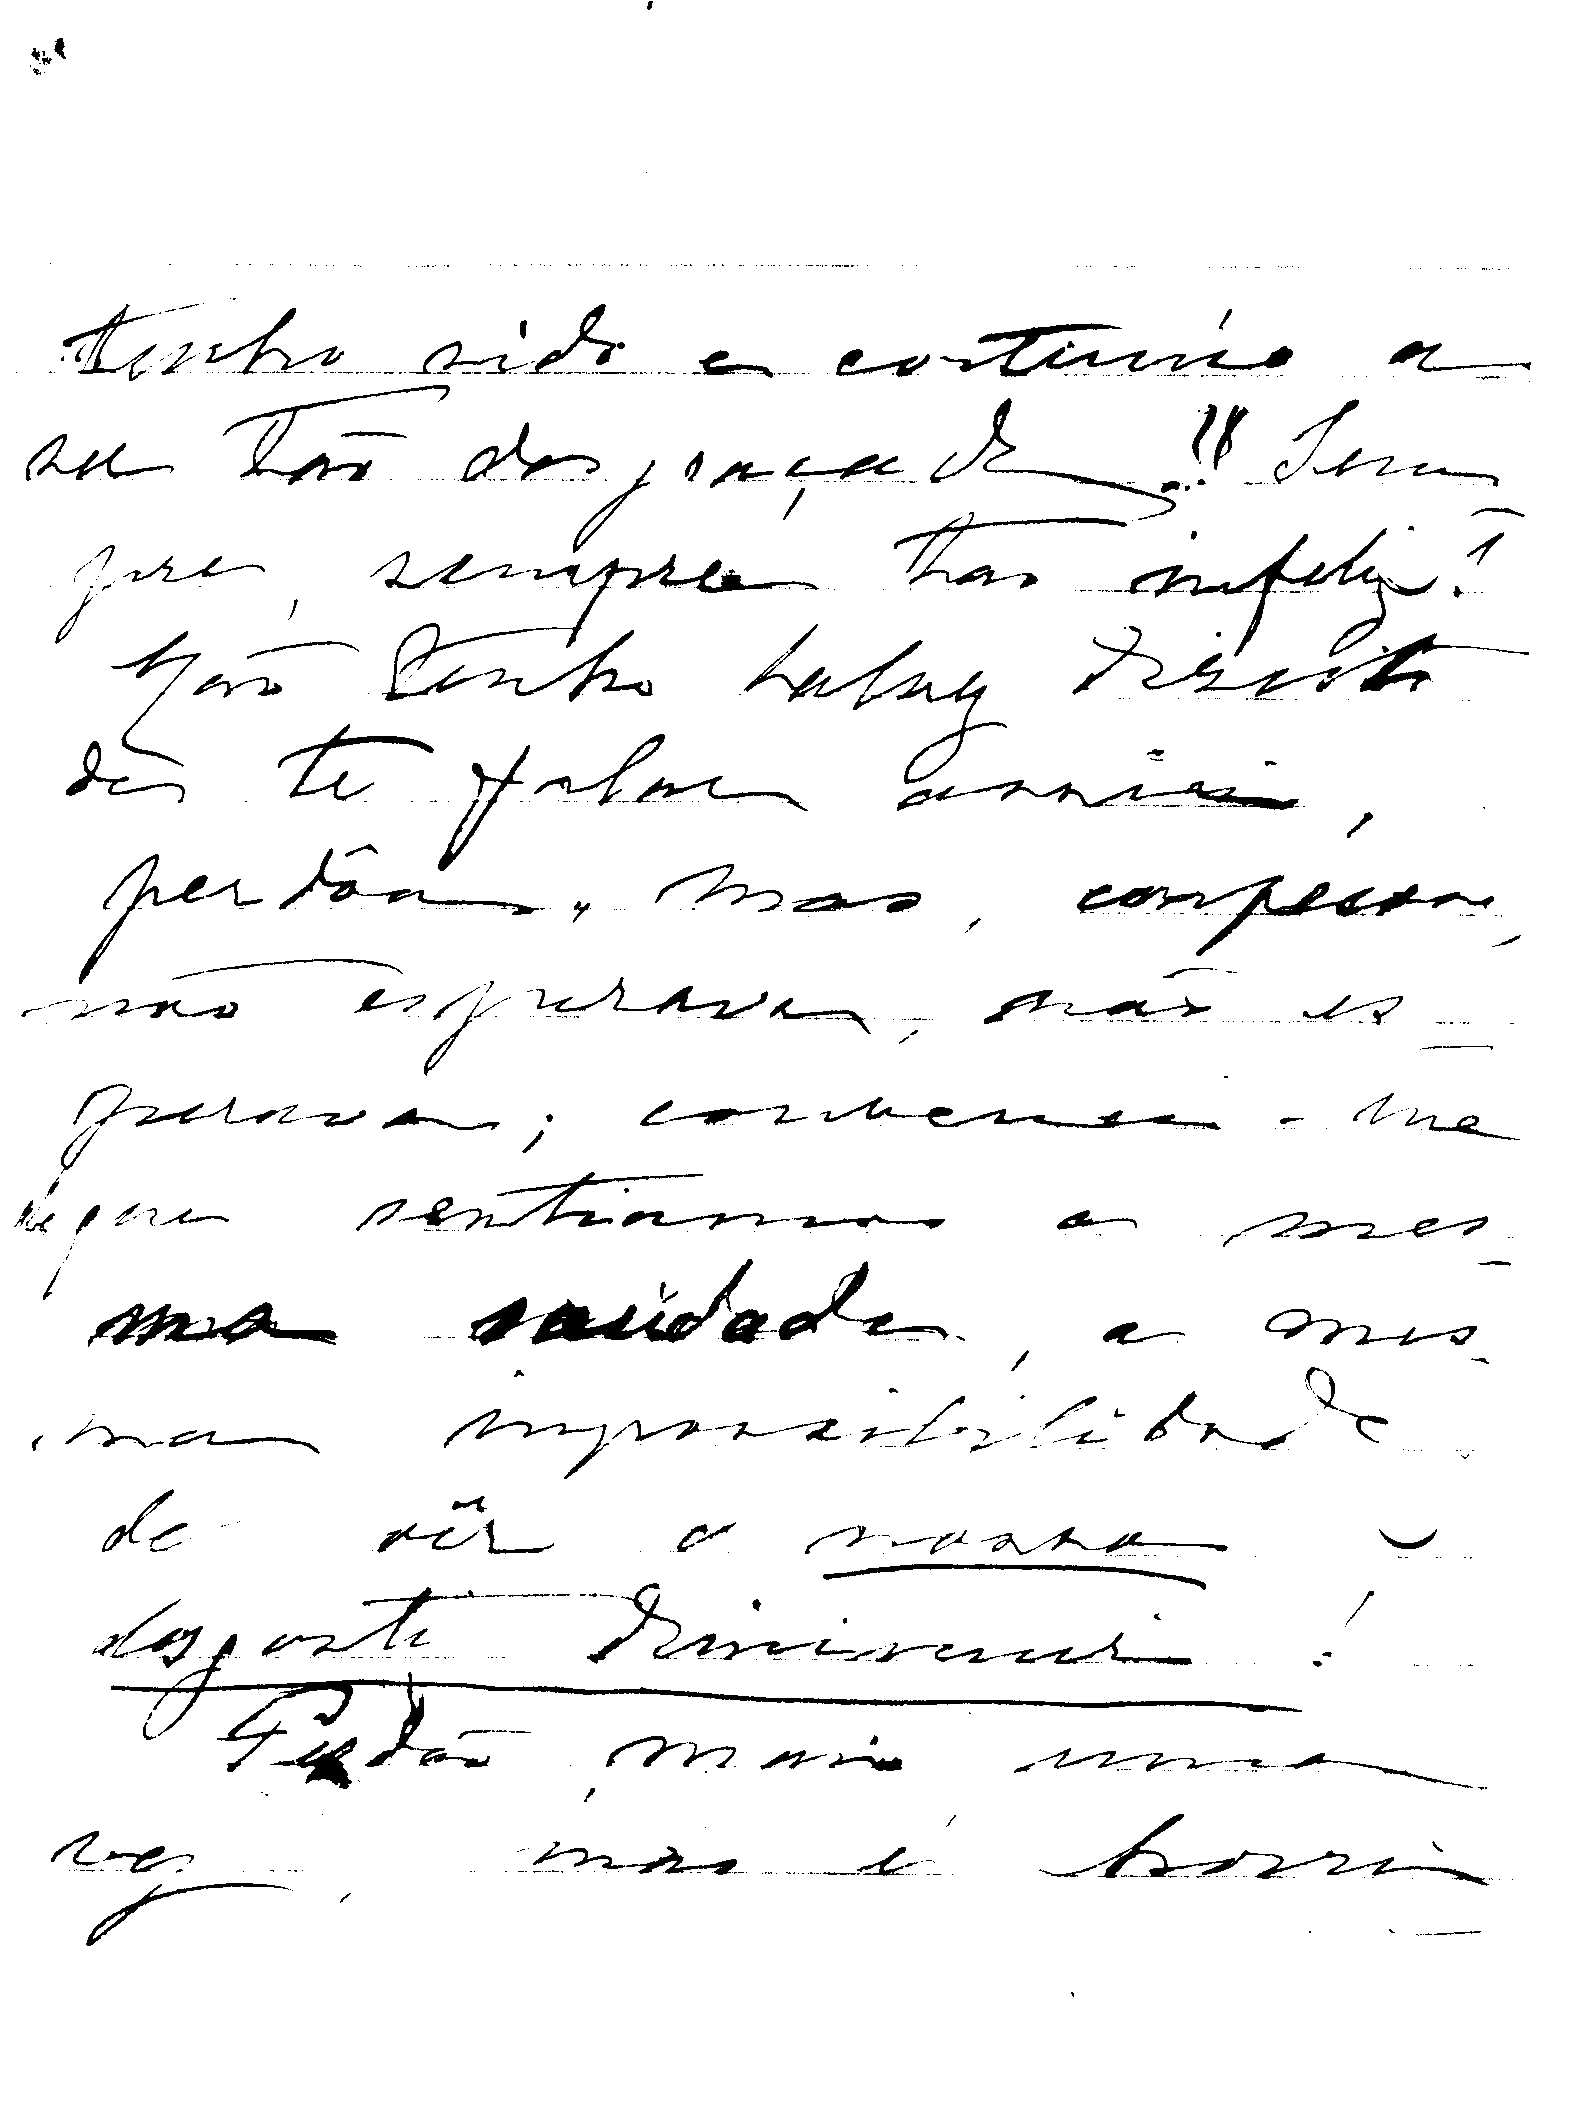 tenho sido e continúo a
ser tão desgraçada!! Sem
pre, sempre tão infeliz!
Não tenho talvez direito
de te falar assim,
perdôa, mas, confesso,
não esperava, não es-
perava; convenci-me
que sentiamos a mes-
ma saúdade, a mes-
ma impossibilidade
de vêr o nosso
desgosto diminuir!
Perdão, mais uma
vez, mas é horri